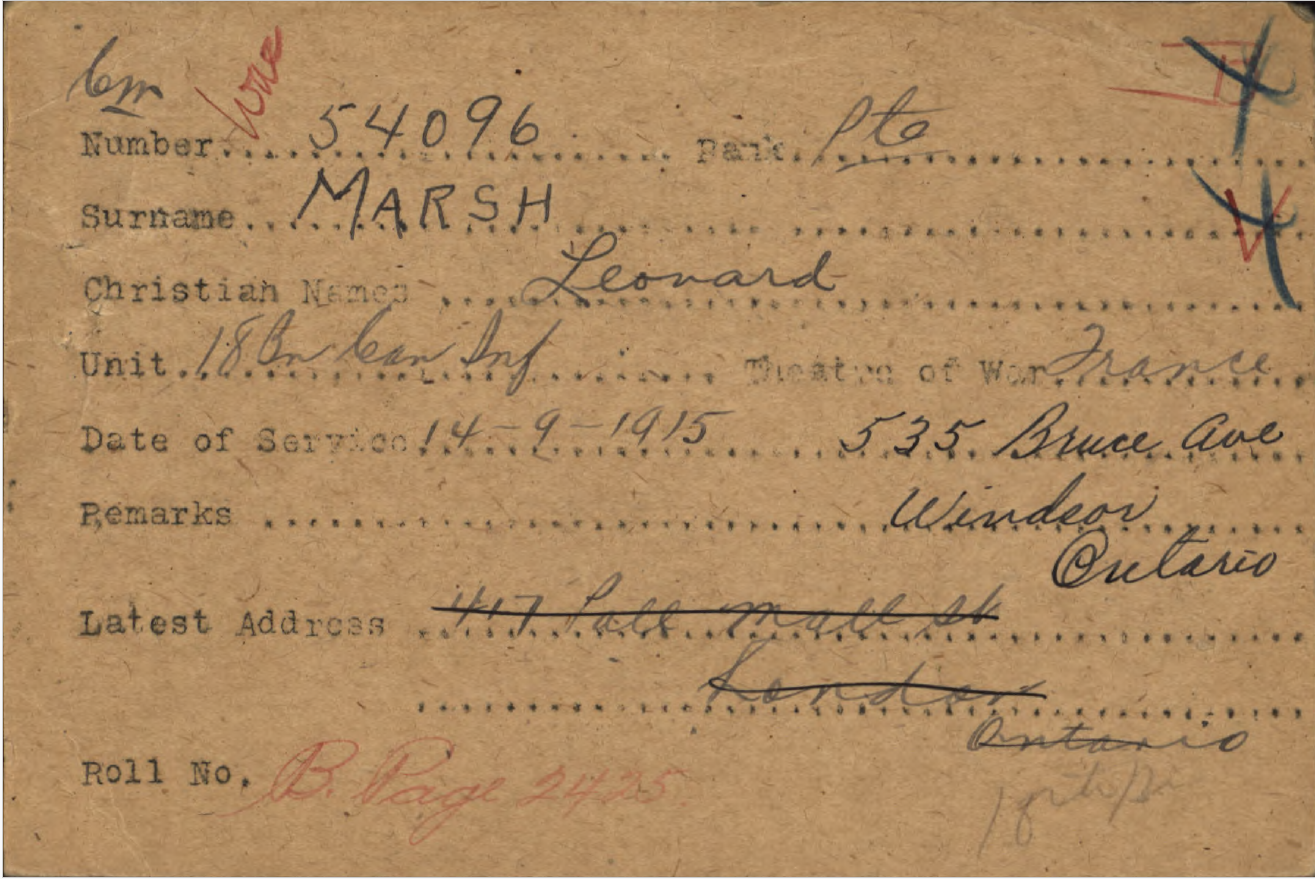 Cm
Number 54096 Rank Pte
Surname MARSH
Christian Names Leonard
Unit 18 Bn Can Inf Theatre of War France
Date of Service 14-9-1915 535 Bruce Ave
Remarks Windsor
Ontario
Latest Address 417 Pall Mall St
London
Ontario
Roll No. B. Page 2425